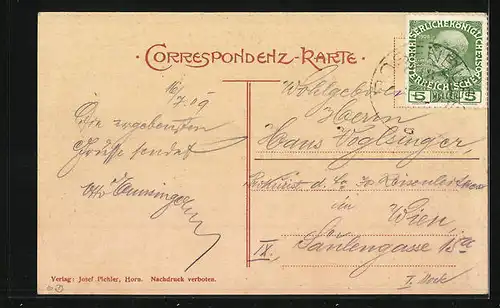 CORRESPONDENZ-KARTE.
16/7.09
Die ergebensten
Grüsse sendet
Otto
Wohlgeboren
Herrn
Hans Voglsinger
d. k.
in
Wien,
IX. Säulengasse 18
I. Stock
KAISERLICHE KÖNIGLICHE
ÖSTERREICHISCHE
5 HELLER 5
Verlag: Josef Pichler, Horn. Nachdruck verboten.